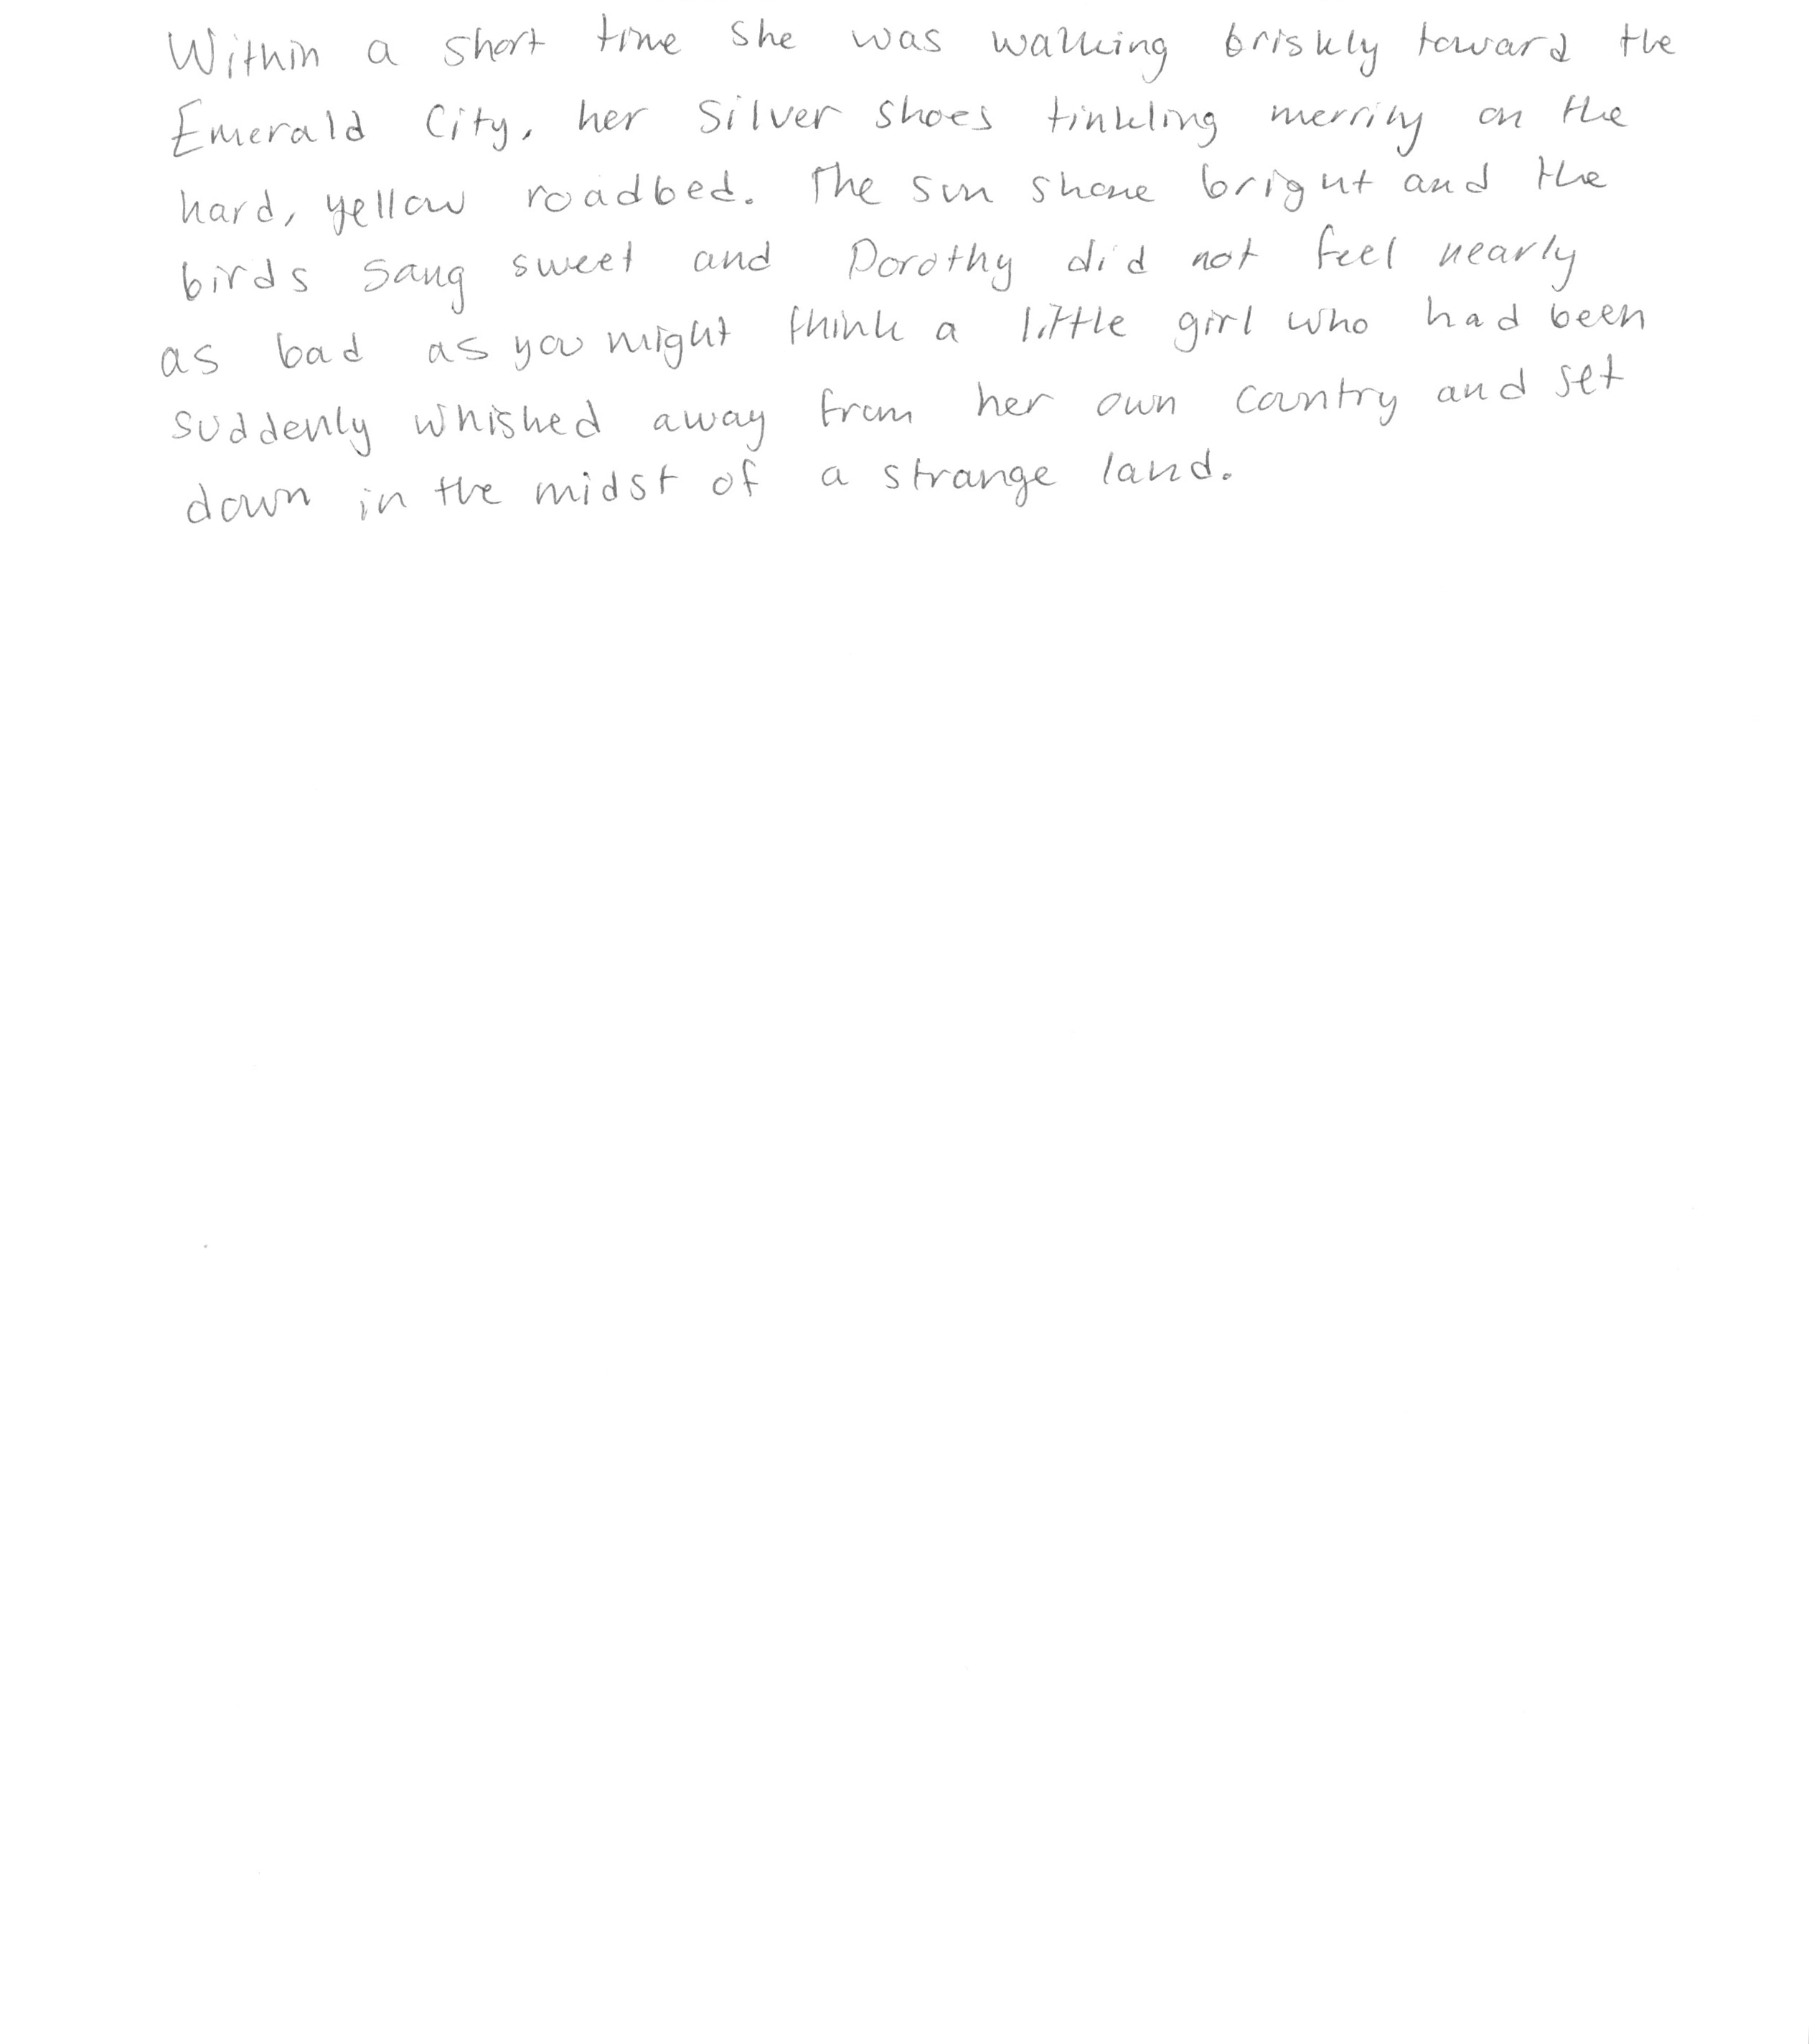 Within a short time she was walking briskly toward the
Emerald City, her Silver Shoes tinkling merrily on the
hard, yellow roadbed. The sun shone bright and the
birds sang sweet and Dorothy did not feel nearly
as bad as you might think a little girl who had been
suddenly whished away from her own country and set
down in the midst of a strange land.